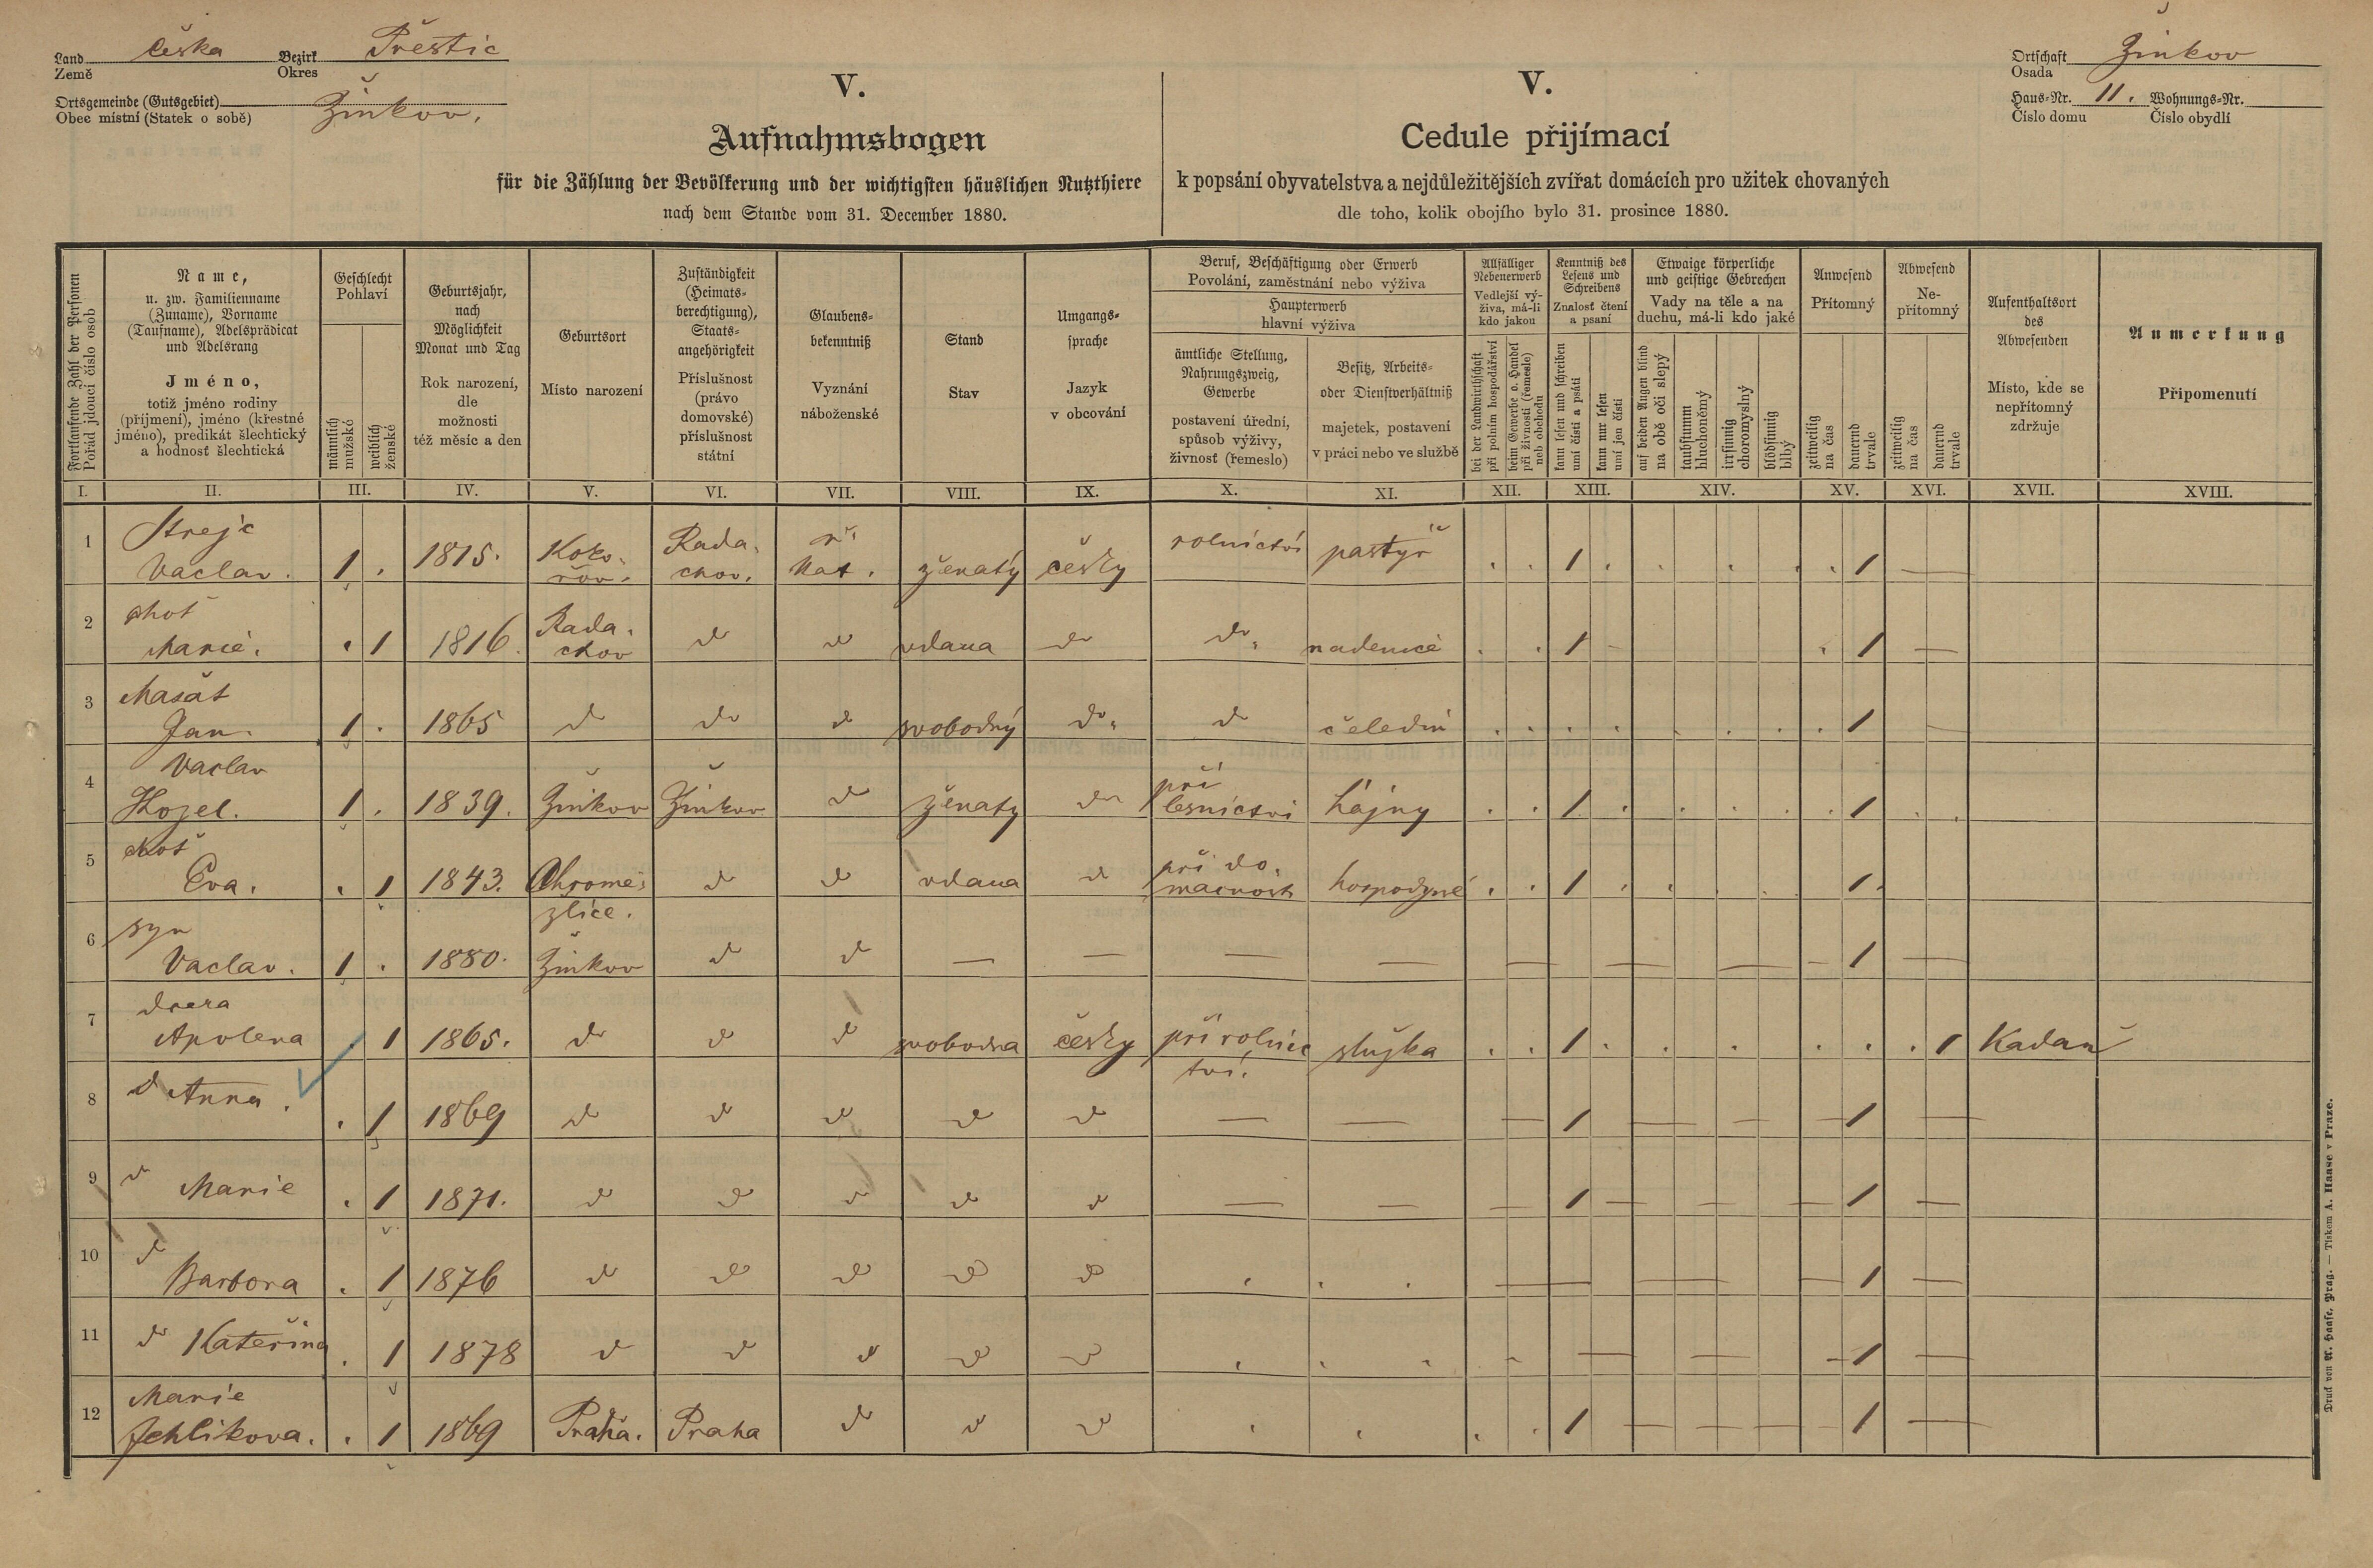 Land Česka Bezirk Přestic
Země Okres
Ortsgemeinde (Gutsgebiet) Žinkov.
Obec místní (Statek o sobě)
Ortschaft Žinkov
Osada
Haus-Nr. 11. Wohnungs-Nr.
Číslo domu Číslo obydlí
V.
Aufnahmsbogen
für die Zählung der Bevölkerung und der wichtigsten häuslichen Nutzthiere
nach dem Stande vom 31. December 1880.
V.
Cedule přijímací
k popsání obyvatelstva a nejdůležitějších zvířat domácích pro užitek chovaných
dle toho, kolik obojího bylo 31. prosince 1880.
Fortlaufende Zahl der Personen
Pořád jdoucí číslo osob
Name,
u. zw. Familienname
(Zuname), Vorname
(Taufname), Adelsprädicat
und Adelsrang
Jméno,
totiž jméno rodiny
(příjmení), jméno (křestné
jméno), predikát šlechtický
a hodnosť šlechtická
Geschlecht
Pohlaví
männlich
mužské
weiblich
ženské
Geburtsjahr,
nach
Möglichkeit
Monat und Tag
Rok narození,
dle
možnosti
též měsíc a den
Geburtsort
Místo narození
Zuständigkeit
(Heimats-
berechtigung),
Staats-
angehörigkeit
Příslušnost
(právo
domovské)
příslušnost
státní
Glaubens-
bekenntniß
Vyznání
náboženské
Stand
Stav
Umgangs-
sprache
Jazyk
v obcování
Beruf, Beschäftigung oder Erwerb
Povolání, zaměstnání nebo výživa
Haupterwerb
hlavní výživa
ämtliche Stellung,
Nahrungszweig,
Gewerbe
postavení úřední,
spůsob výživy,
živnosť (řemeslo)
Besitz, Arbeits-
oder Dienstverhältniß
majetek, postavení
v práci nebo ve službě
Allfälliger
Nebenerwerb
Vedlejší vý-
živa, má-li
kdo jakou
bei der Landwirthschaft
při polním hospodářství
beim Gewerbe o. Handel
při živnosti (řemesle)
neb obchodu
Kenntniß des
Lesens und
Schreibens
Znalosť čtení
a psaní
kann lesen und schreiben
umí čísti a psáti
kann nur lesen
umí jen čísti
Etwaige körperliche
und geistige Gebrechen
Vady na těle a na
duchu, má-li kdo jaké
auf beiden Augen blind
na obě oči slepý
taubstumm
hluchoněmý
irrsinnig
choromyslný
blödsinnig
blbý
Anwesend
Přítomný
zeitweilig
na čas
dauernd
trvale
Abwesend
Ne-
přítomný
zeitweilig
na čas
dauernd
trvale
Aufenthaltsort
des
Abwesenden
Místo, kde se
nepřítomný
zdržuje
Anmerkung
Připomenutí
I. II. III. IV. V. VI. VII. VIII. IX. X. XI. XII. XIII. XIV. XV. XVI. XVII. XVIII.
1 Strejc
Vaclav. 1 . 1815. Koko-
řov. Rada-
chov. ř.
kat. ženatý česky rolnictví pastýř 1 1 —
2 choť
Marie. . 1 1816. Rada-
chov do do vdana do do. nadenice 1 1 —
3 Masát
Jan. 1 . 1865 do do do svobodný do. do čeledín 1
4 Vaclav
Hojel. 1 . 1839. Žinkov Žinkov do ženaty do při
lesnictvi hájny 1 1
5 choť
Eva. . 1 1843. Chrome-
zlice. do do vdana do při do-
macnosti hospodyně 1 1
6 syn
Vaclav. 1 . 1880. Žinkov do do — — — — — — — — 1 —
7 dcera
Apolena . 1 1865. do do do svobodna česky při rolnic
tví. služka 1 1 Kadaň
8 do Anna. . 1 1869 do do do do do — — — 1 — — — 1 —
9 do Marie . 1 1871. do do do do do — — — 1 — — — 1 —
10 do
Barbora . 1 1876 do do do do do — — — 1 —
11 do Kateřina . 1 1878 do do do do do — — — 1 —
12 Marie
Jehlikova. . 1 1869 Praha. Praha do do do 1 — — — — 1 —
Druck von A. Haase, Prag. — Tiskem A. Haase v Praze.